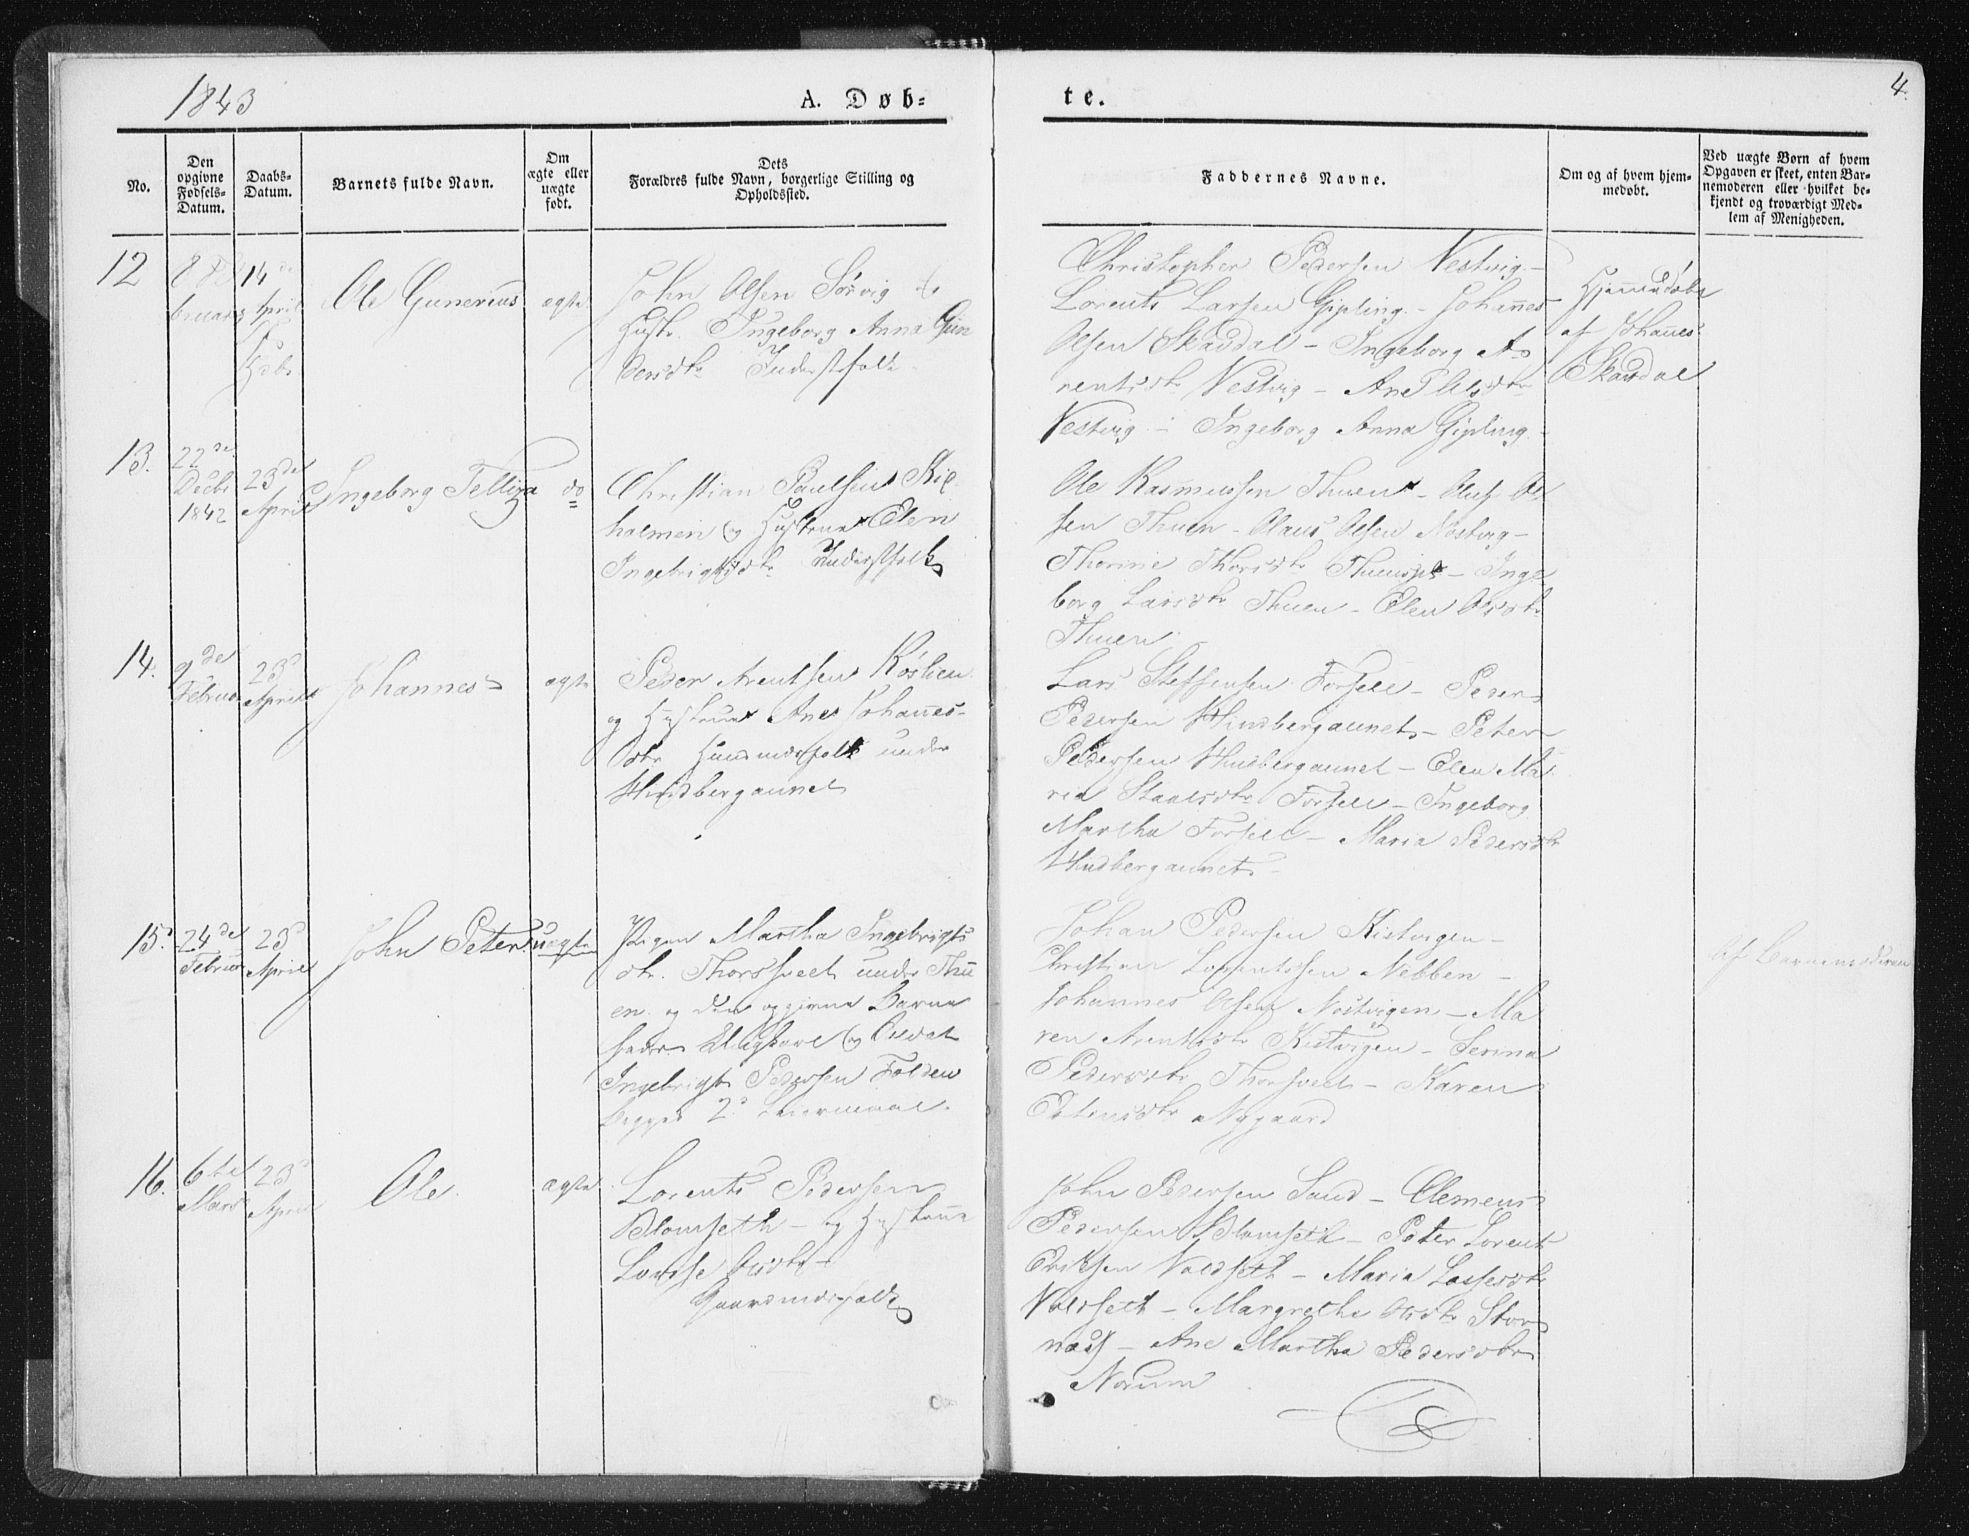 1843
A. Døb=
te.
4.
No.
Den opgivne Fødsels-Datum.
Daabs-Datum.
Barnets fulde Navn.
Om ægte eller uægte født.
Dets Forældres fulde Navn, borgerlige Stilling og Opholdssted.
Faddernes Navne.
Om og af hvem hjemmedøbt.
Ved uægte Børn af hvem Opgaven er skeet, enten Barnemoderen eller hvilket bekjendt og troværdigt Medlem af Menigheden.
12
14de April
Ole Gunerius
ægte
John Olsen Sörvig
Hustr. Ingeborg Anna Gun
dersdtr Inderstfolk
Christopher Pedersen Nestvig -
Lorents Larsen Gipling - Johanes
Olsen Skavdal - Ingeborg A
rentsdtr Vestvig - Ane Olsdtr
Vestvig - Ingeborg Anna Gipling -
Hjemmedöbt
af Johanes
Skavdal
13.
22de
Decbr
1842
23de
April
Ingeborg Telliza
do
Christian Paulsen
holmen og Hustrue Elen
Ingebrigtsdtr Inderstfolk
Ole Rasmussen Thuen - Oluf Ol
sen Thuen - Olaus Olsen Nöstvig -
Thorine Thorsdtr - Inge
borg Larsdtr Thuen - Elen Olsdtr
Thuen
14.
9de
Februar
23d
April
Johannes
ægte
Peder Arentsen Röslien
og Hustrue Ane Johanes-
dtr Huusmdsfolk under
Hindbergaunet
Lars Steffensen Forsell - Peder
Pedersen Hindbergaunet - Peter
Pedersen Hindbergaunet - Elen Ma
ria Staalsdtr Forsell - Ingeborg
Martha Forsell - Maria Pedersdtr
Hindbergaunet -
15.
24de
Februar
23d
April
John Peter
uægte
Pigen Martha Ingebrigts
dtr. Thorsveet under Thu
en og den opgivne Barne
fader Ungkarl og Soldat
Ingebrigt Pedersen Folden
begges 2d Leiermaal.
Johan Pedersen Kistvigen -
Christian Lorentssen Nebben -
Johannes Olsen Nöstvigen - Ma
ren Arentsdtr Kistvigen - Serina
Pedersdtr Thorsveet - Karen
Nygaard
Af Barnemoderen
16.
6te
Mars
23d
April
Ole
ægte
Lorents Pedersen
Blomseth - og Hustrue
Lovise Olsdtr -
Gaardmdsfolk
John Pedersen Sand - Clemens
Pedersen Blomseth - Peter Lorents
Eriksen Valdseth - Maria Lassesdtr
Valdseth - Margrethe Olsdtr Stor
næs - Ane Martha Pedersdtr
Norum